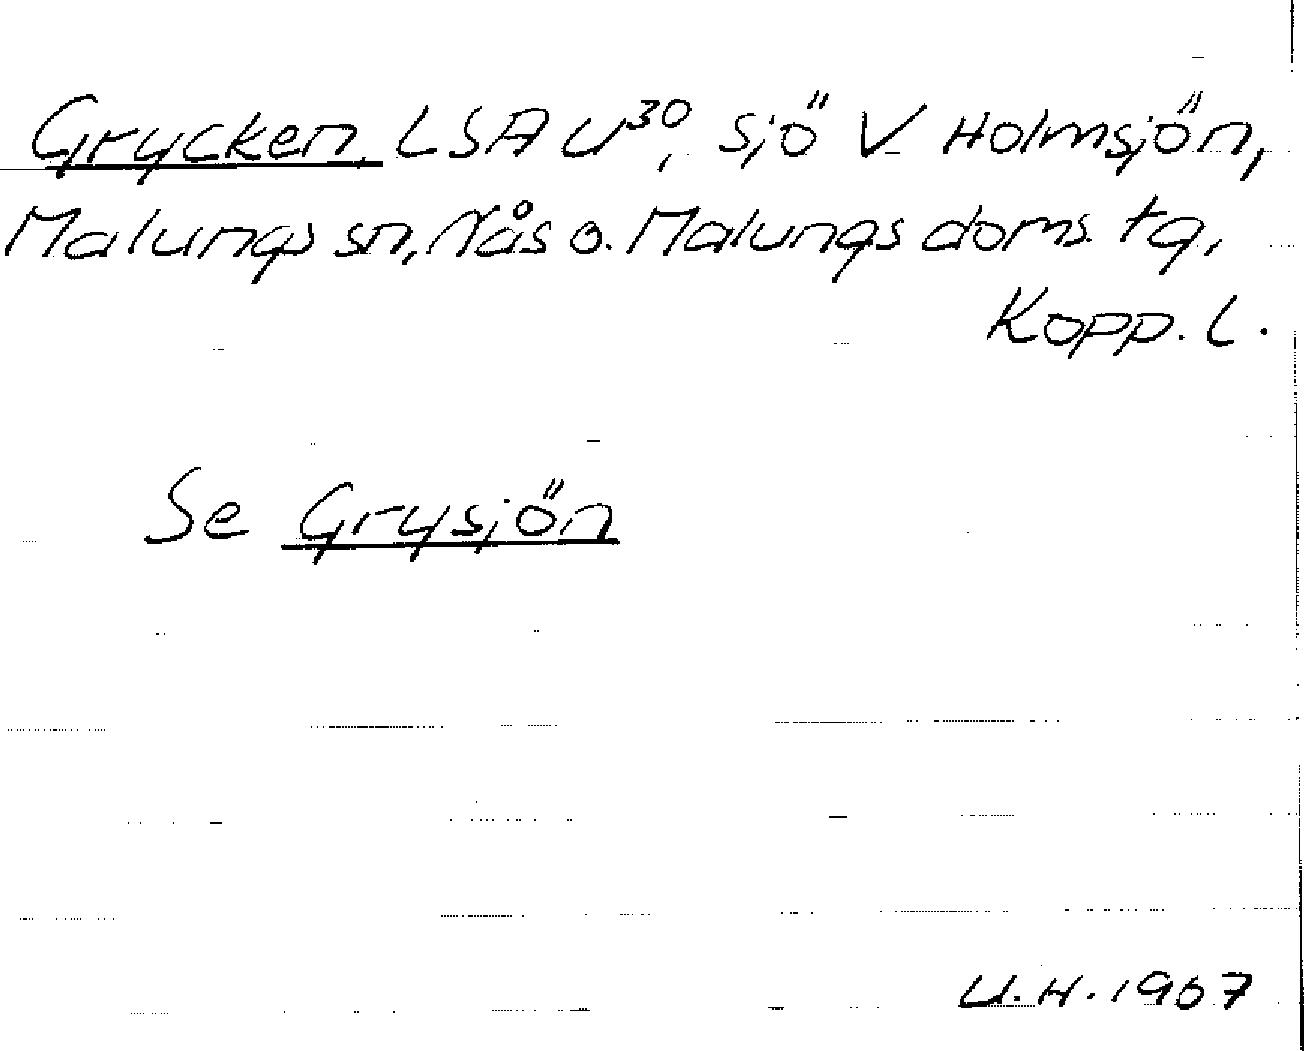 Grycken, LSA U³⁰, sjö V Holmsjön,
Malungs sn, Nås o. Malungs doms. tg,
Kopp. l.
Se Grysjön
U.H. 1967